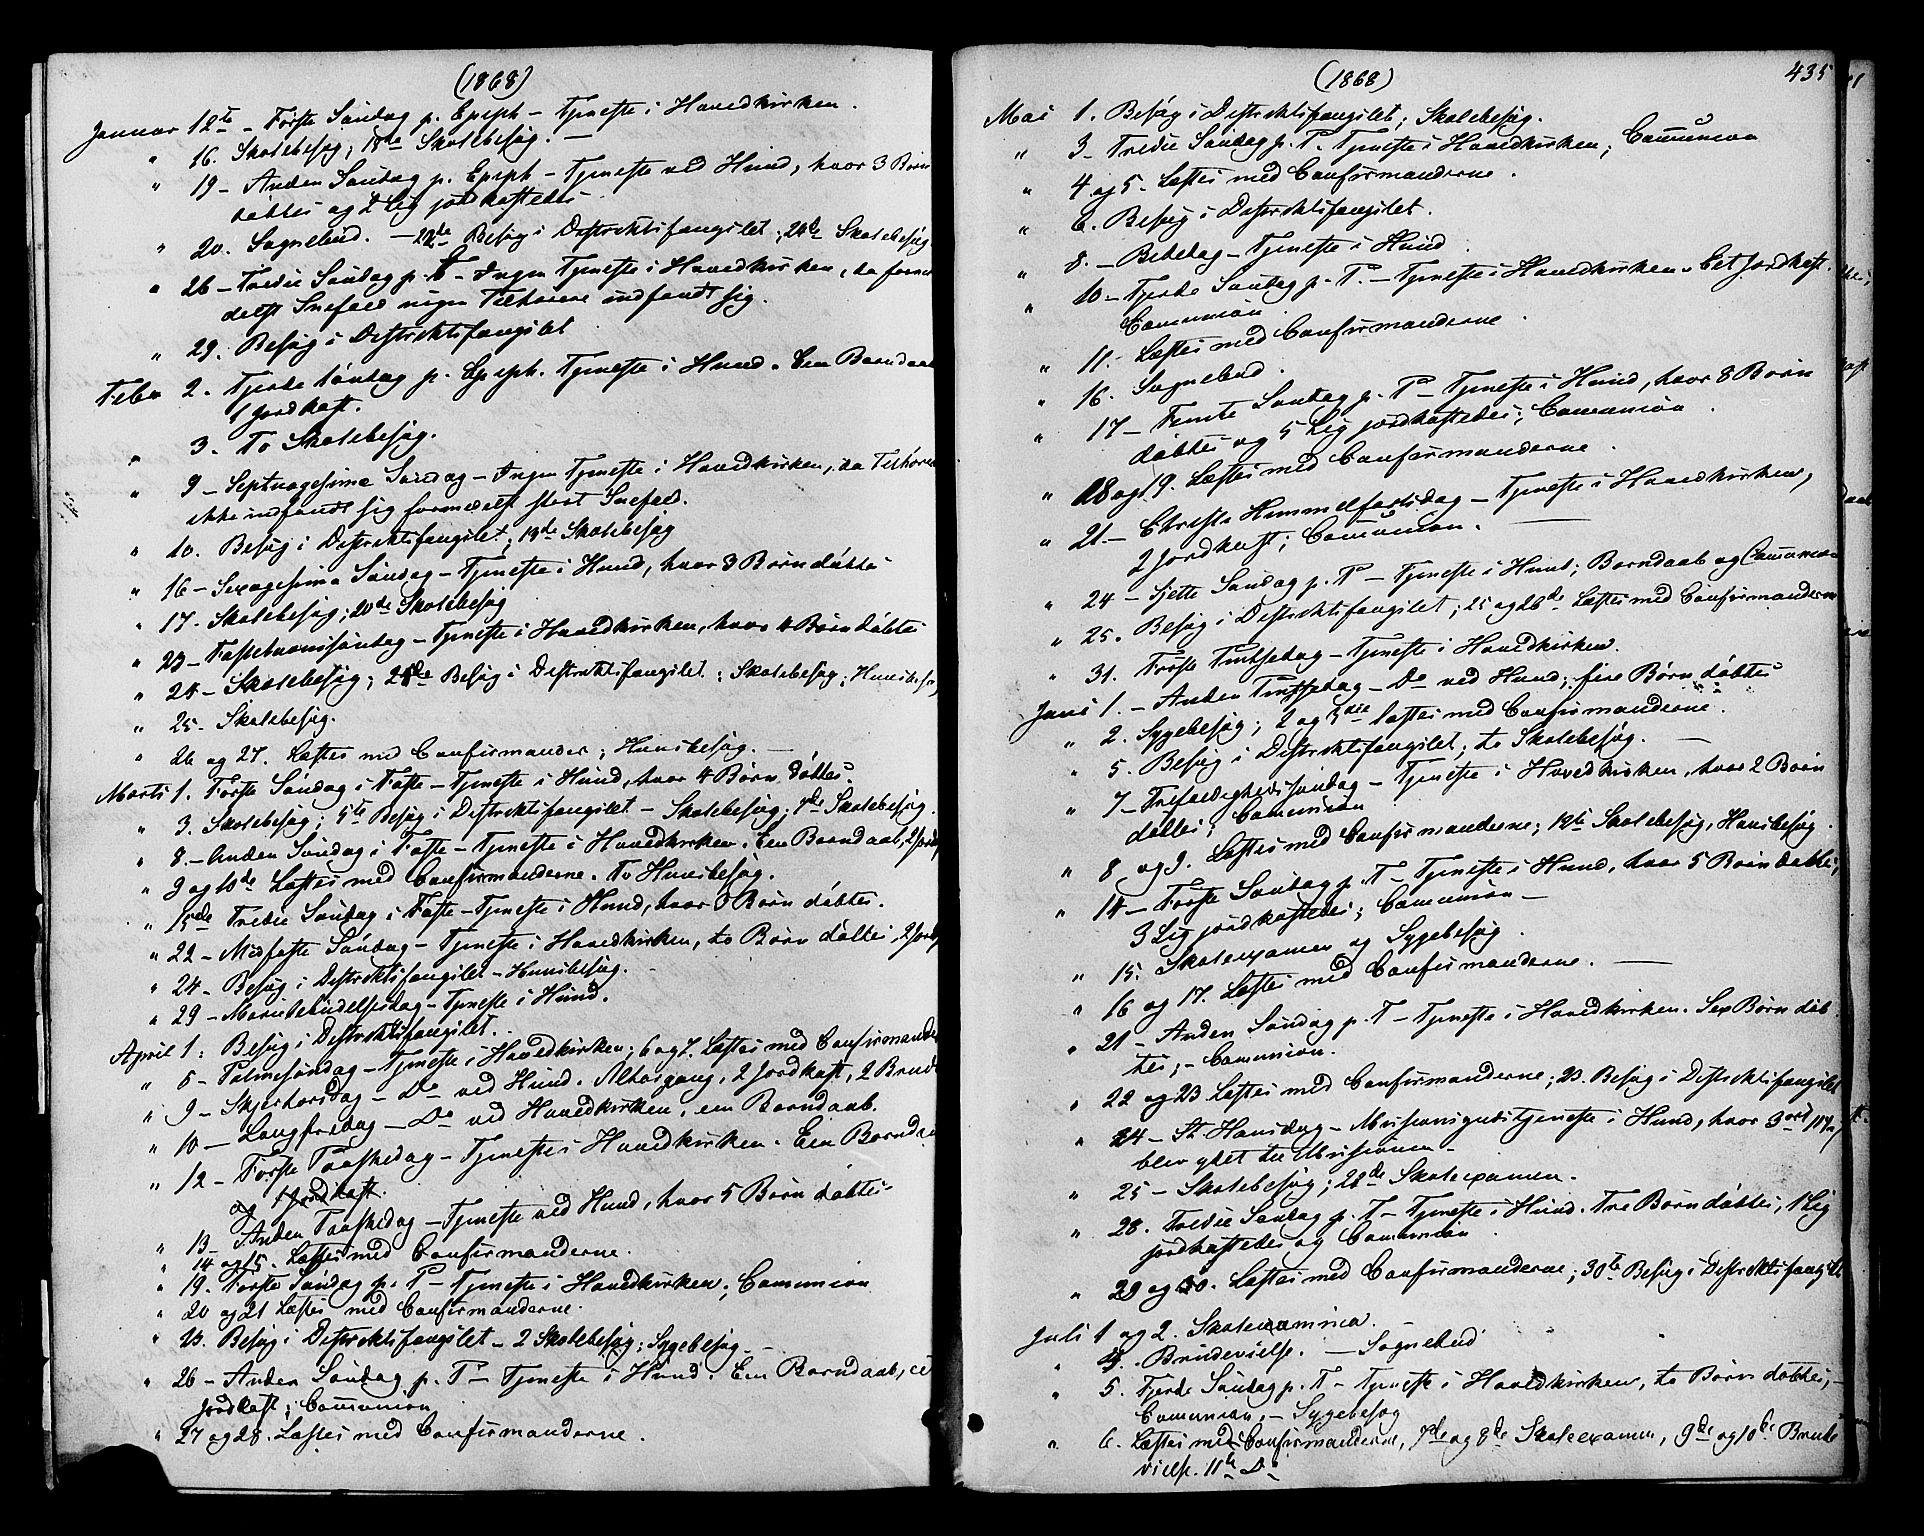 (1868)
Januar 12te - Første Søndag p. Epiph - Tjeneste i Hovedkirken.
" 16. Skolebesøg; 18de Skolebesøg. -
" 19 - Anden Søndag p. Epiph - Tjeneste ved Hund, hvor 3 Børn
døbtes og 2 Lig jordkastedes
" 20. Sognebud. - 22de Besøg i Distriktsfængslet; 24de Skolebesøg
" 26 - Tredie Søndag p. E - Ingen Tjeneste i Hovedkirken, da forme-
delst Snefald ingen Tilhørere indfandt sig.
" 29. Besøg i Distriktsfængslet
Febr 2. Fjerde Søndag p. Epiph. Tjeneste i Hund. Een Barndaab
1 Jordkast.
" 3. To Skolebesøg.
" 9 - Septuagesima Søndag - Ingen Tjeneste i Hovedkirken, da Tilhørere
ikke indfandt sig formedelst stort Snefald.
" 10. Besøg i Distriktsfængslet; 13de Skolebesøg
" 16 - Sexagesima Søndag - Tjeneste i Hund, hvor 3 Børn døbtes
" 17. Skolebesøg; 20de Skolebesøg
" 23 - Fastelavnssøndag - Tjeneste i Hovedkirken, hvor 4 Børn døbtes
" 24 - Skolebesøg; 24de Besøg i Distriktsfængslet; Skolebesøg; Huusbesøg
" 25 - Skolebesøg.
" 26 og 27. Læstes med Confirmander; Huusbesøg. -
Marts 1. Første Søndag i Faste - Tjeneste i Hund, hvor 4 Børn døbtes.
" 3. Skolebesøg; 5te Besøg i Distriktsfængslet - Skolebesøg; 7de Skolebesøg
" 8. - Anden Søndag i Faste - Tjeneste i Hovedkirken. Een Barndaab, 2 Jordk
" 9 og 10de Læstes med Confirmanderne. To Huusbesøg.
" 15de Tredie Søndag i Faste - Tjeneste i Hund, hvor 3 Børn døbtes.
" 22 - Midfaste Søndag - Tjeneste i Hovedkirken, to Børn døbtes, 2 Jordk
" 24 - Besøg i Distriktsfængslet - Huusbesøg.
" 29 - Mariæ Bebudelsesdag - Tjeneste i Hund.
April 1: Besøg i Distriktsfængslet.
" 5 - Palmesøndag - Tjeneste i Hovedkirken; 6 og 7. Læstes med Confirmande
" 9 - Skjertorsdag - Do ved Hund. Altergang, 2 Jordkast, 2 Brude
" 10 - Langfredag - Do ved Hovedkirken, een Barndaab.
" 12 - Første Paaskedag - Tjeneste i Hovedkirken. Een Barndaa
og 1 Jordkast.
" 13 - Anden Paaskedag - Tjeneste ved Hund, hvor 5 Børn døbtes
" 14 og 15. Læstes med Confirmanderne.
" 19. Første Søndag p. P - Tjeneste i Hovedkirken; Communion
" 20 og 21 Læstes med Confirmanderne.
" 23. Besøg i Distriktsfængslet - 2 Skolebesøg; Sygebesøg -
" 26 - Anden Søndag p. P - Tjeneste i Hund. Een Barndaab, et
Jordkast; Communion
" 27 og 28. Læstes med Confirmanderne.
(1868) 435
Mai 1. Besøg i Distriktsfængslet; Skolebesøg.
" 3 - Tredie Søndag p. P. Tjeneste i Hovedkirken; Communion
" 4 og 5 - Læstes med Confirmanderne.
" 6. Besøg i Distriktsfængslet.
" 8. - Bededag - Tjeneste i Hund
" 10 - Fjerde Søndag p. P. - Tjeneste i Hovedkirken. Eet Jordkast.
Communion.
" 11. Læstes med Confirmanderne.
" 16. Sognebud.
" 17 - Femte Søndag p. P - Tjeneste i Hund, hvor 8 Børn
døbtes og 5 Lig jordkastedes; Communion.
" 18 og 19. Læstes med Confirmanderne.
" 21 - Christi Himmelfartsdag - Tjeneste i Hovedkirken,
2 Jordkast; Communion. -
" 24 - Sjette Søndag p. P - Tjeneste i Hund; Barndaab og Communion
" 25. Besøg i Distriktsfængslet; 25 og 26de Læstes med Confirmanderne
" 31. Første Pintsedag - Tjeneste i Hovedkirken.
Juni 1. - Anden Pintsedag - Do ved Hund; fire Børn døbtes
" 2. Sygebesøg; 2 og 3die læstes med Confirmanderne.
" 5. Besøg i Distriktsfængslet; to Skolebesøg. -
" 7 - Trefoldighedssøndag - Tjeneste i Hovedkirken, hvor 2 Børn
døbtes; Communion
" 8 og 9. Læstes med Confirmanderne; 12te Skolebesøg, Huusbesøg.
" 14 - Første Søndag p. T - Tjeneste i Hund, hvor 5 Børn døbtes,
3 Lig jordkastedes; Communion -
" 15. Skoleexamen og Sygebesøg.
" 16 og 17. Læstes med Confirmanderne. -
" 21 - Anden Søndag p. T - Tjeneste i Hovedkirken. Sex Børn døb-
tes, - Communion.
" 22 og 23 Læstes med Confirmanderne; 23. Besøg i Distriktsfængslet
" 24 - St. Hansdag - Missionsgudstjeneste i Hund, hvor 3 ort
blev ydet til Missionen -
" 25 - Skolebesøg; 26de Skoleexamen.
" 28. Tredie Søndag p. T - Tjeneste i Hund. Tre Børn døbtes, 1 Lig
jordkastedes og Communion.
" 29 og 30. Læstes med Confirmanderne; 30te Besøg i Distriktsfængslet
Juli 1 og 2. Skoleexamina.
" 4. Brudevielse. - Sognebud
" 5. Fjerde Søndag p. T - Tjeneste i Hovedkirken, to Børn døbtes, -
Communion, - Sygebesøg
" 6. Læstes med Confirmanderne, 7de og 8de Skoleexamen, 9de og 10de Brude-
vielse. 11te Do